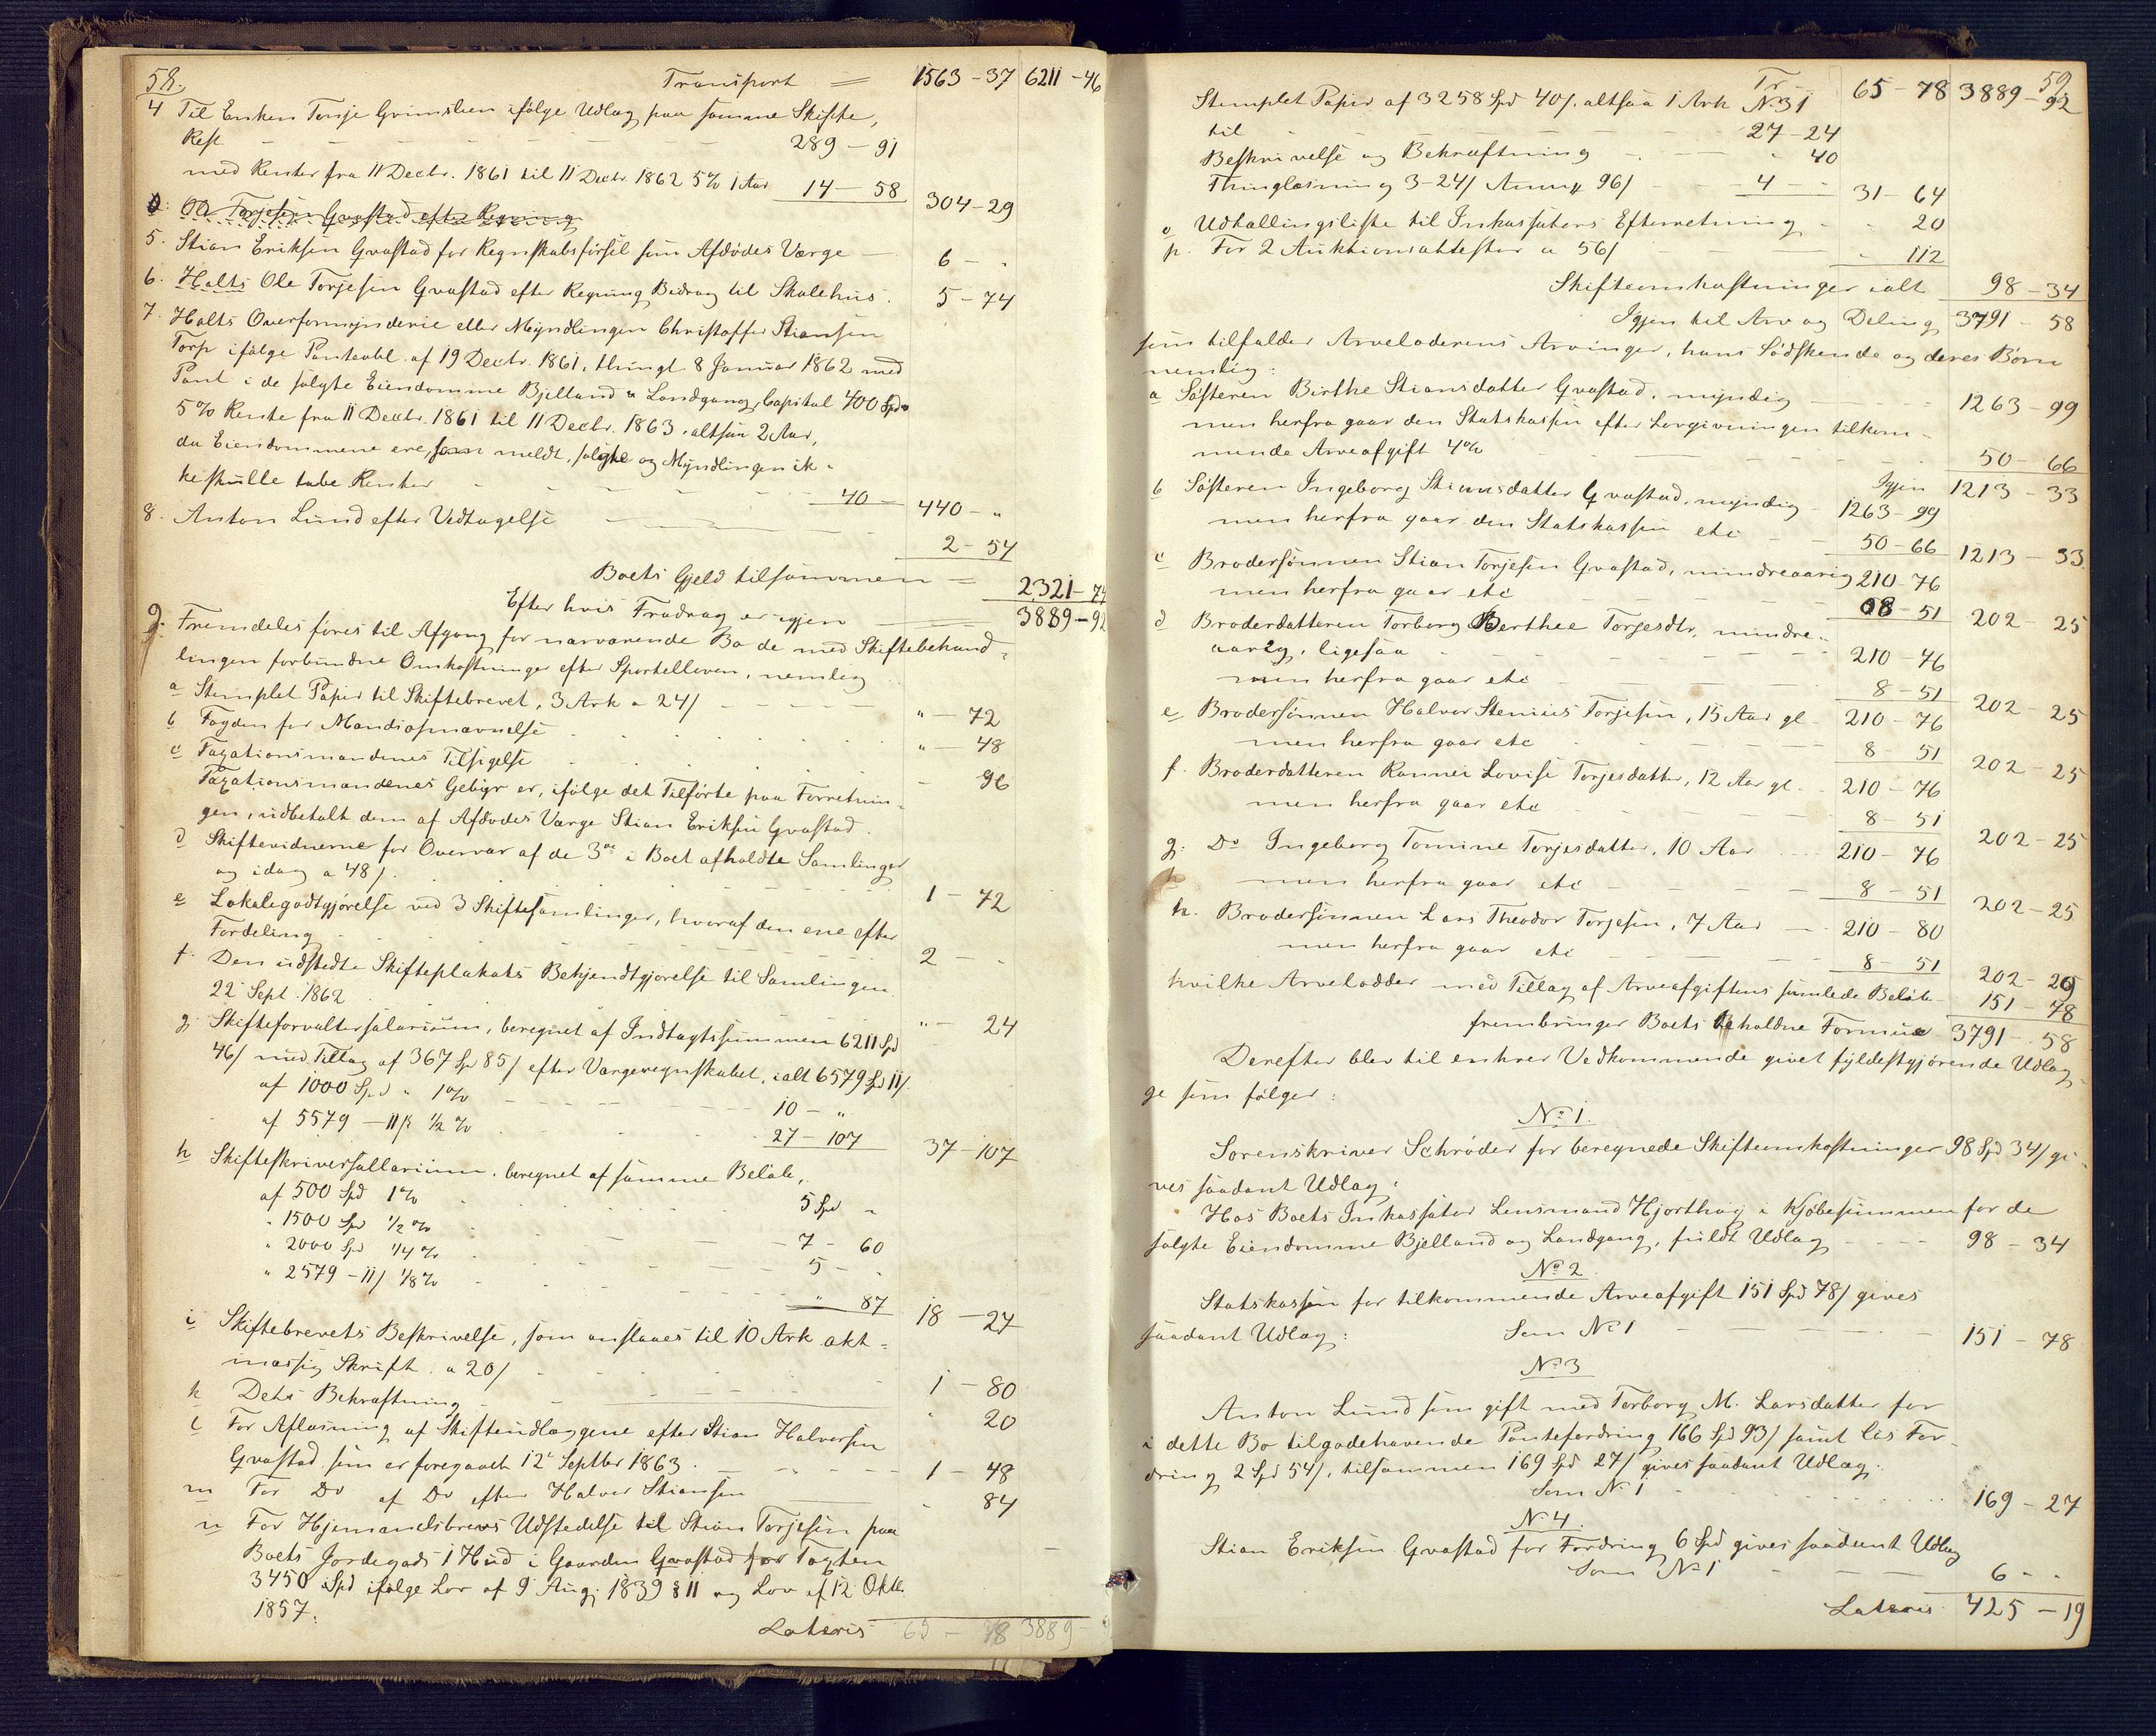 58.
Transport = 1563 - 37 6211 - 46
4 Til Enken Tonje Grimslien ifølge Udlæg paa samme Skifte,
Rest - - - - - - 289 - 91
med Renter fra 11 Decbr. 1861 til 11 Decbr. 1862 5% 1 Aar 14 - 58 304 - 29
Ole Torjesen Gvastad efter Regning
5. Stian Eriksen Gvastad for Regnskabsførsel som Afdødes Værge - 6 - "
6. Holts Ole Torjesen Gvastad efter Regning Bidrag til Skolehus. 5 - 74
7. Holts Overformynderie eller Myndlingen Christoffer Stiansen
Torp ifølge Panteobl. af 19 Decbr. 1861, thingl. 8 Januar 1862 med
Pant i de solgte Eiendomme Bjelland & Landgang, Capital 400 Spd
5% Rente fra 11 Decbr. 1861 til 11 Decbr. 1863, altsaa 2 Aar,
da Eiendommene ere, som meldt, solgte og Myndlingen ik-
ke skulle tabe Renter - - - - 40 - 440 - "
8. Anton Lund efter Vedtagelse - - 2 - 54
Boets Gjeld tilsammen = 2321 - 74
Efter hvis Fradrag er igjen 3889 - 92
9. Fremdeles føres til Afgang for nærværende Bo de med Skiftebehand-
lingen forbundne Omkostninger efter Sportelloven, nemlig
a Stemplet Papir til Skiftebrevet, 3 Ark a 24/ - - - " - 72
b Fogden for Mandsopnævnelse " - 48
c Taxationsmændenes Tilsigelse - 96
Taxationsmændenes Gebyr er, ifølge det Tilførte paa Forretnin-
gen, udbetalt dem af Afdødes Værge Stian Eriksen Gvastad.
d Skiftevidnerne for Overvær af de 3de i Boet afholdte Samlinger
og idag a 48/. 1 - 72
e Lokalegodtgjørelse ved 3 Skiftesamlinger, hvoraf den ene efter
Fordeling 2 - -
f. Den udstedte Skifteplakats Bekjendtgjørelse til Samlingen
22 Sept. 1862 " - 24
g. Skifteforvaltersalarium, beregnet af Indtægtssummen 6211 Spd
46/ med Tillæg af 367 Sp 85/ efter Værgeregnskabet, ialt 6579 Spd 11/.
af 1000 Spd " 1% - - - 10 - "
af 5579 - 11ß ½ % 27 - 107 37 - 107
h Skifteskriversallarium, beregnet af samme Beløb,
af 500 Spd 1% 5 Spd "
" 1500 Spd ½ % 7 - 60
" 2000 Spd ¼ % 5 - .
" 2579 - 11/ ⅛ % " 87 18 - 27
i Skiftebrevets Beskrivelse, som anslaaes til 10 Ark akt-
mæssig Skrift a 20/ 1 - 80
k Dets Bekræftning " 20
l For Aflæsning af Skifteudlæggene efter Stian Halvorsen
Gvastad som er foregaaet 12te Septbr 1863. 1 - 48
m For Do af Do efter Halvor Stiansen - 84
n For Hjemmelsbrevs Udstedelse til Stian Torjesen paa
Boets Jordegods 1 Hud i Gaarden Gvastad for Taxten
3450 Spd ifølge Lov af 9 Aug. 1839 § 11 og Lov af 12 Oktbr.
1857.
Lateris 65 - 78 3889 -
59
Tr - 65 - 78 3889 - 92
Stemplet Papir af 3258 Spd 40/. altsaa 1 Ark No 31
til - - - 27 - 24
Beskrivelse og Bekræftning - " 40
Thinglæsning 3-24/ Anmg 96/ 4 - - 31 - 64
o Udkallingsliste til Inkassators Efterretning - " 20
p. For 2 Auktionsattester a 56/ " 112
Skifteomkostninger ialt 98 - 34
Igjen til Arv og Deling 3791 - 58
som tilfalder Arveladerens Arvinger, hans Sødskende og deres Børn
nemlig:
a Søsteren Birthe Stiansdatter Gvastad, myndig 1263 - 99
men herfra gaar den Statskassen efter Lovgivningen tilkom-
mende Arveafgift 4% 50 - 66
Igjen 1213 - 33
b Søsteren Ingeborg Stiansdatter Gvastad, myndig - 1263 - 99
men herfra gaar den Statskassen etc - 50 - 66 1213 - 33
c Brodersønnen Stian Torjesen Gvastad, mindreaarig 210 - 76
men herfra gaar etc 08 - 51 202 - 25
d Broderdatteren Torborg Berthee Torjesdtr, mindre-
aarig, ligesaa 210 - 76
men herfra gaar etc 8 - 51 202 - 25
e Brodersønnen Halvor Stenius Torjesen, 15 Aar gl. 210 - 76
men herfra gaar etc 8 - 51 202 - 25
f. Broderdatteren Rannei Lovise Torjesdatter, 12 Aar gl. 210 - 76
men herfra gaar etc 8 - 51 202 - 25
g. Do Ingeborg Tomine Torjesdatter, 10 Aar 210 - 76
men herfra gaar etc 8 - 51 202 - 25
h. Brodersønnen Lars Theodor Torjesen, 7 Aar 210 - 80
men herfra gaar etc 8 - 51 202 - 29
hvilke Arvelodder med Tillæg af Arveafgiftens samlede Beløb 151 - 78
frembringer Boets Beholdne Formue 3791 - 58
Derefter blev til enhver Vedkommende givet fyldestgjørende Udlæg-
ge som følger:
No 1.
Sorenskriver Schrøder for beregnede Skifteomkostninger 98 Spd 34/ gi-
ves saadant Udlæg:
Hos Boets Inkassator Lensmand Hjorthøy i Kjøbesummen for de
solgte Eiendomme Bjelland og Landgang, fuldt Udlæg 98 - 34
No 2
Statskassen for tilkommende Arveafgift 151 Spd 78/ gives
saadant Udlæg: Som No 1 151 - 78
No 3
Anton Lund som gift med Torborg M. Larsdatter for
i dette Bo tilgodehavende Pantefordring 166 Spd 93/ samt løs For-
dring 2 Spd 54/, tilsammen 169 Spd 27/ gives saadant Udlæg:
Som No 1 169 - 27
No 4.
Stian Eriksen Gvastad for Fordring 6 Spd gives saadant Udlæg
Som No 1 6 - -
Lateris 425 - 19